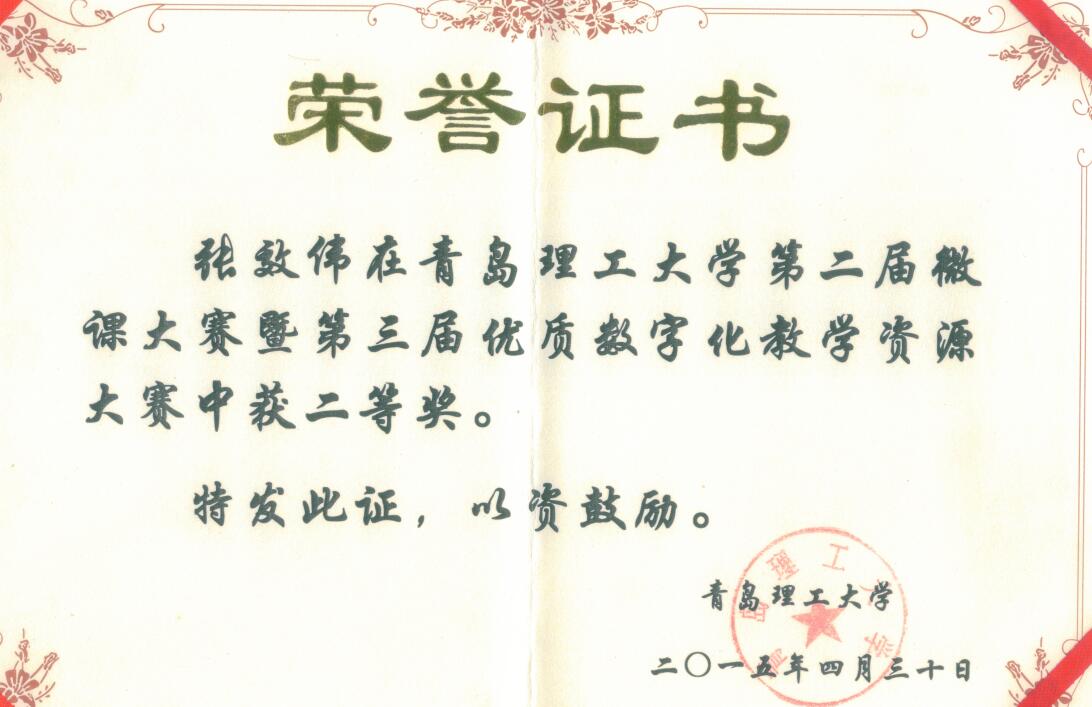 荣誉证书
张效伟在青岛理工大学第二届微
课大赛暨第三届优质数字化教学资源
大赛中获二等奖。
特发此证，以资鼓励。
青岛理工大学
青岛理工大学
二〇一五年四月三十日